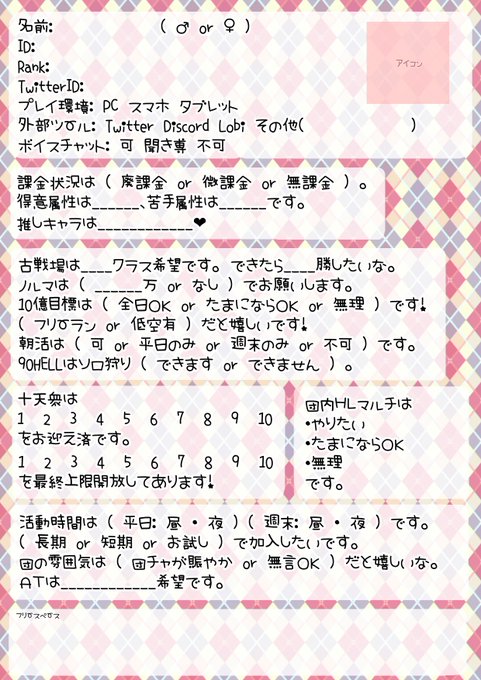 名前:                ( ♂ or ♀ )
アイコン
ID:
Rank:
TwitterID:
プレイ環境: PC スマホ タブレット
外部ツール: Twitter Discord Lobi その他(                )
ボイスチャット: 可 聞き専 不可
課金状況は ( 廃課金 or 微課金 or 無課金 ) 。
得意属性は______、苦手属性は______です。
推しキャラは____________❤
古戦場は____クラス希望です。できたら____勝したいな。
ノルマは ( ______万 or なし ) でお願いします。
10億目標は ( 全日OK or たまにならOK or 無理 ) です!
( フリーラン or 低空有 ) だと嬉しいです!
朝活は ( 可 or 平日のみ or 週末のみ or 不可 ) です。
90HELLはソロ狩り ( できます or できません ) 。
十天衆は
1 2 3 4 5 6 7 8 9 10
をお迎え済です。
1 2 3 4 5 6 7 8 9 10
を最終上限開放してあります!
団内HLマルチは
・やりたい
・たまにならOK
・無理
です。
活動時間は ( 平日: 昼 ・ 夜 ) ( 週末: 昼 ・ 夜 ) です。
( 長期 or 短期 or お試し ) で加入したいです。
団の雰囲気は ( 団チャが賑やか or 無言OK ) だと嬉しいな。
ATは____________希望です。
フリースペース